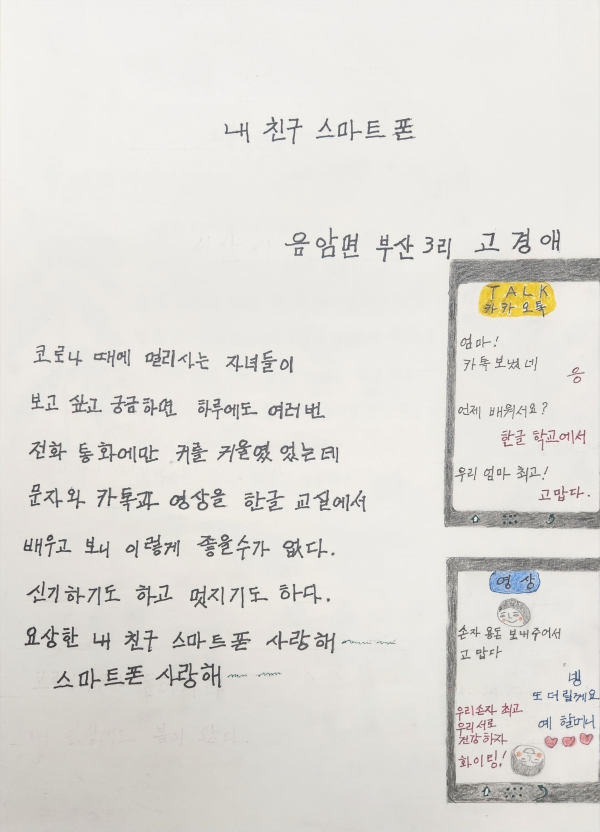 내 친구 스마트폰
음암면 부산3리 고경애
코로나 때에 멀리사는 자녀들이
보고 싶고 궁금하면 하루에도 여러번
전화 통화에만 귀를 귀울였 었는데
문자와 카톡과 영상을 한글 교실에서
배우고 보니 이렇게 좋을수가 없다.
신기하기도 하고 멋지기도 하다.
요상한 내 친구 스마트폰 사랑해~~
스마트폰 사랑해~~
TALK
카카오톡
엄마!
카톡보냈네
응
언제 배워서요?
한글 학교에서
우리 엄마 최고!
고맙다.
영상
손자 용돈 보내주어서
고맙다
넹
또 더릴게요
우리손자 최고
우리서로
건강하자
화이팅!
예 할머니